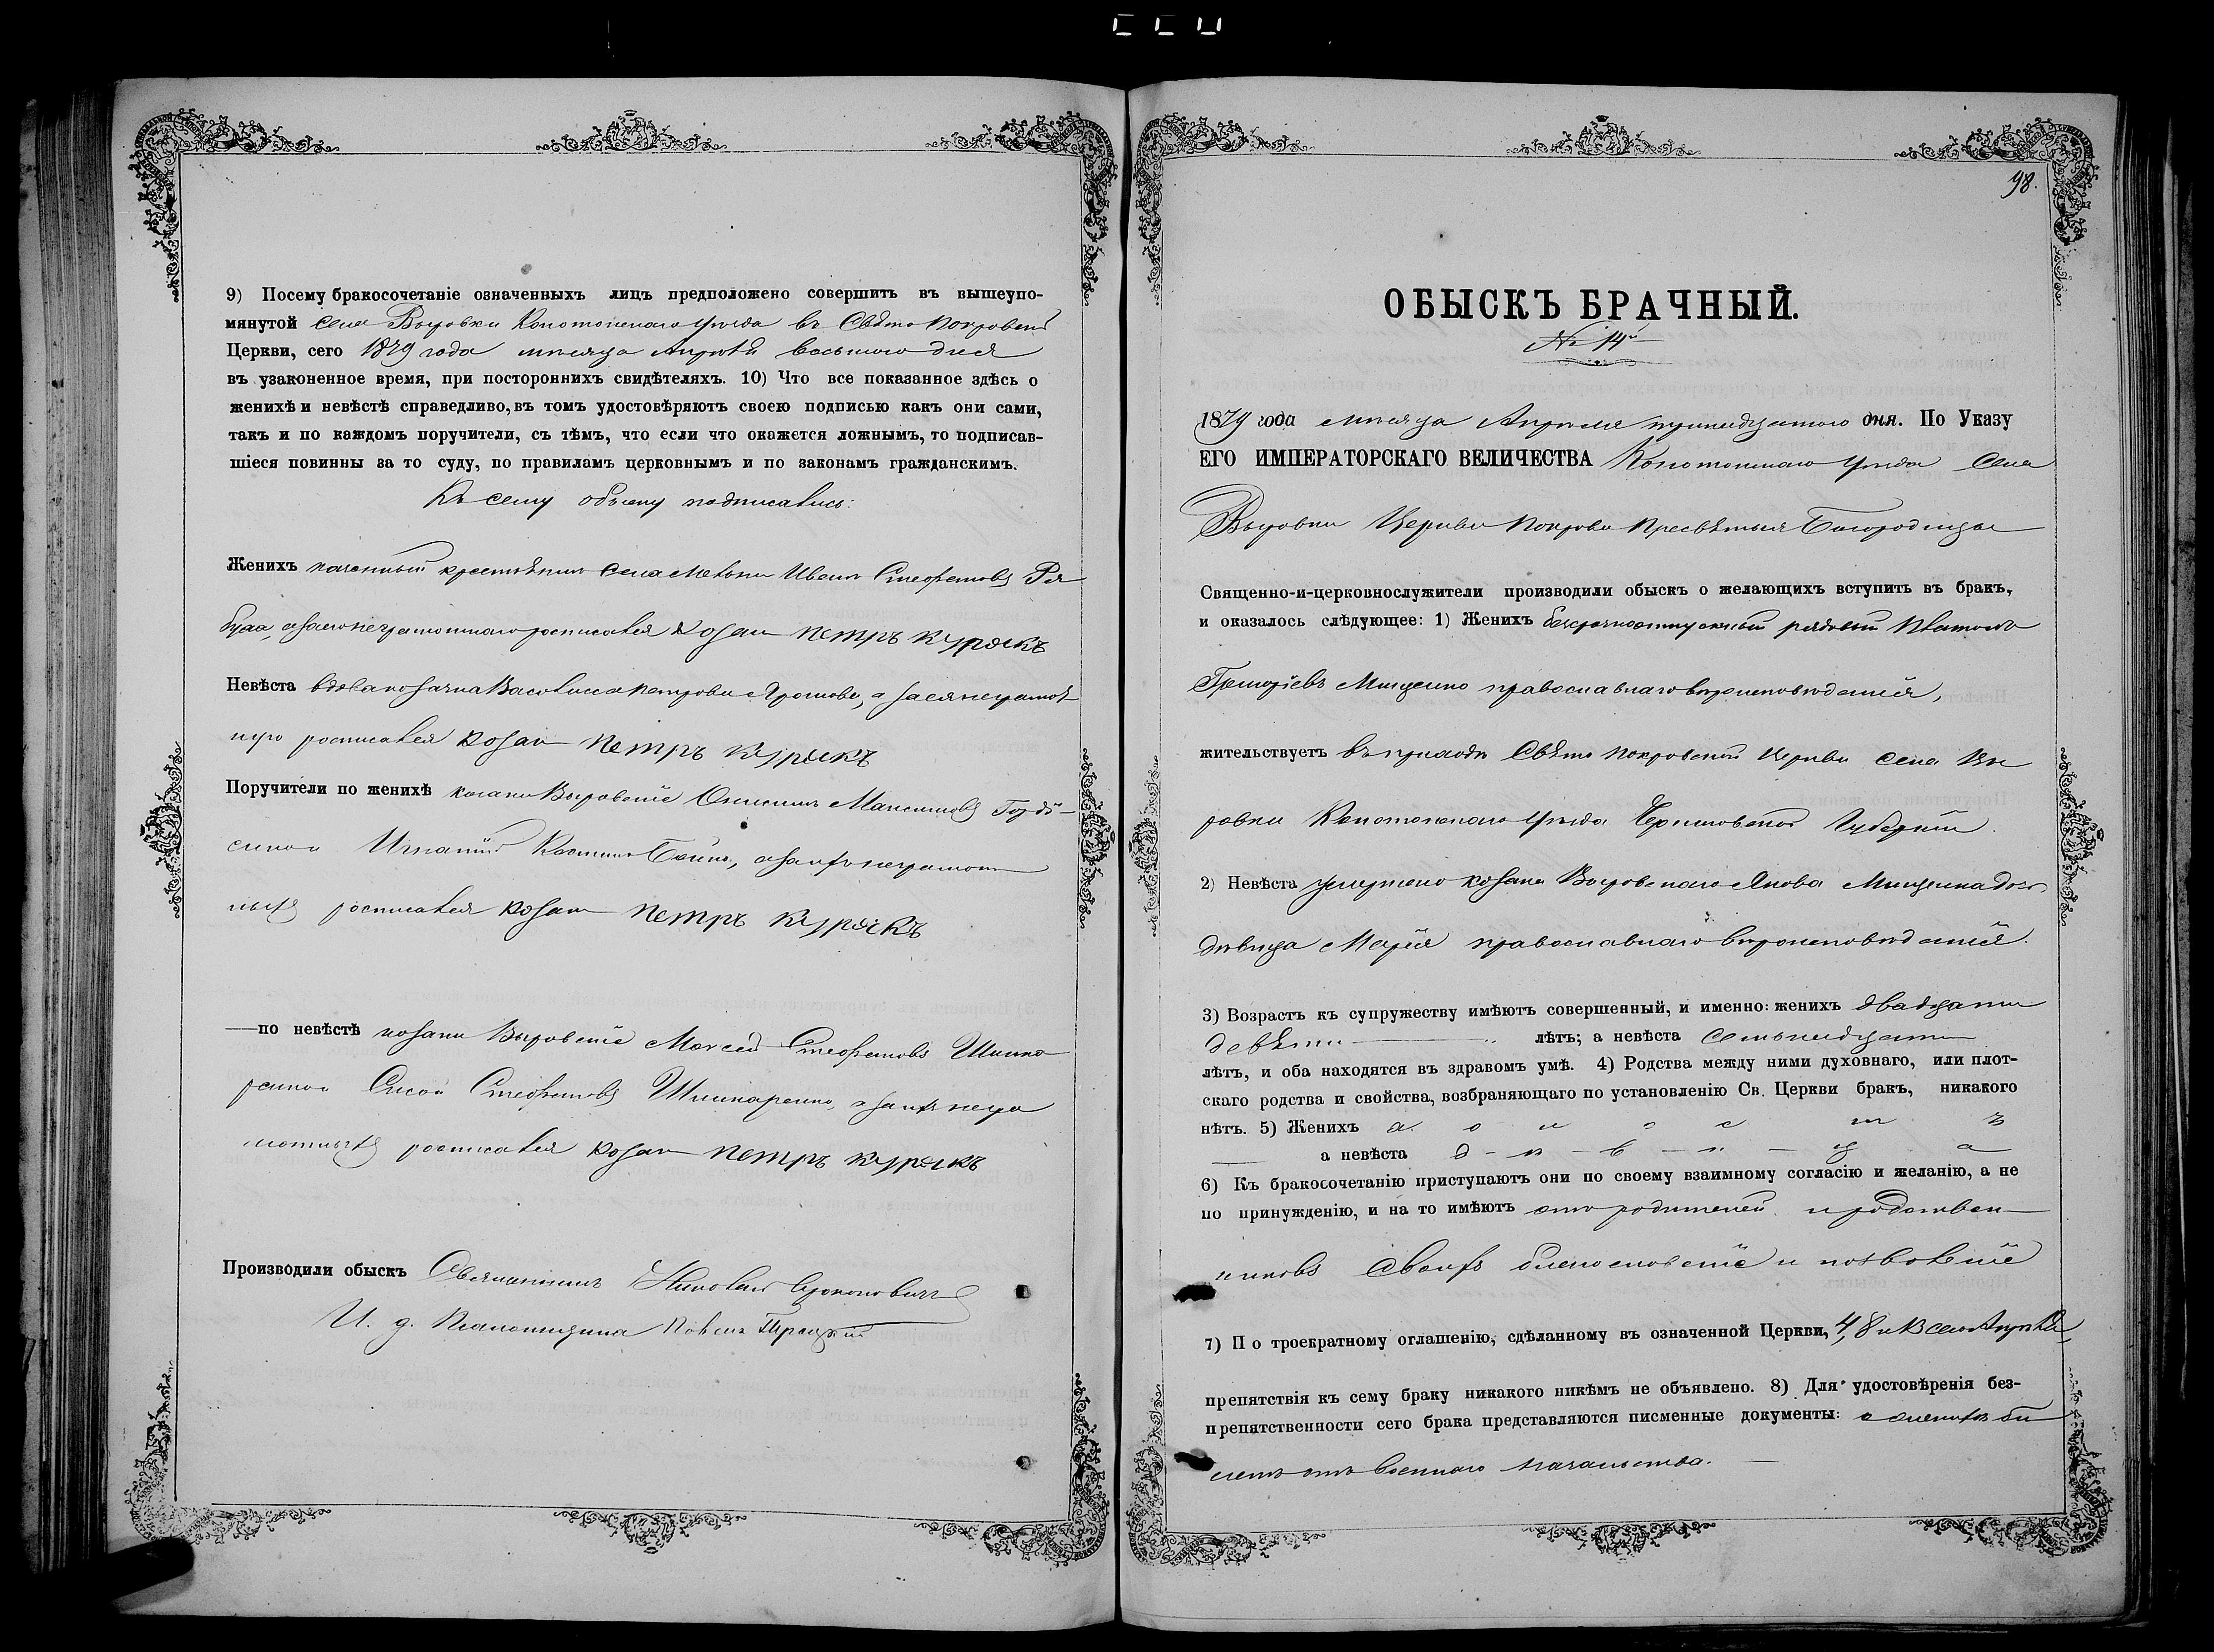 9) Посему бракосочетаніе означенныхъ лицъ предположено совершить въ вышеупо-
мянутой села Выровки Конотопскаго уѣзда въ Свято Покровской
Церкви, сего 1879 года мѣсяца Апрѣля восьмого дня
въ узаконенное время, при постороннихъ свидѣтеляхъ. 10) Что все показанное здѣсь о
женихѣ и невѣстѣ справедливо, въ томъ удостовѣряютъ своею подписью какъ они сами,
такъ и по каждомъ поручители, съ тѣмъ, что если что окажется ложнымъ, то подписав-
шіеся повинны за то суду, по правиламъ церковнымъ и по законамъ гражданскимъ.
Къ сему обыску подписались:
Женихъ крестьянинъ села Иванъ Стефановъ Ря
буха, а за него неграмотнаго росписался козак петръ курускъ
Невѣста вдова козачка Васса Петрова а за ея неграмот
ную росписался козак петръ курускъ
Поручители по женихѣ козаки Выровскіе Онисимъ Максимовъ Горді-
енко и Игнатій а за ихъ неграмот
ныхъ росписался козак петръ курускъ
—по невѣстѣ козаки Выровскіе Моисей Стефановъ Шинка
ренко и Стефановъ Шинкаренко, а за ихъ негра
мотныхъ росписался козак петръ курускъ
Производили обыск Священникъ Николай
И. д. Псаломщика Павелъ Троцкій
98.
ОБЫСКЪ БРАЧНЫЙ.
№ 14й
1879 года мѣсяца Апрѣля тринадцатого дня. По Указу
ЕГО ИМПЕРАТОРСКАГО ВЕЛИЧЕСТВА Конотопскаго уѣзда Села
Выровки Церкви Покрова Пресвятыя Богородицы
Священно-и-церковнослужители производили обыскъ о желающихъ вступить въ бракъ,
и оказалось слѣдующее: 1) Женихъ безсрочноотпускный рядовой Платонъ
Григоріевъ Мищенко православнаго вѣроисповѣданія,
жительствуетъ въ приходѣ Свято Покровской Церкви села Вы
ровки Конотопскаго уѣзда Черниговской Губерніи.
2) Невѣста умершаго козака Выровскаго Якова Мищенка дочь
дѣвица Марія православнаго вѣроисповѣданія.
3) Возрастъ къ супружеству имѣютъ совершенный, и именно: женихъ двадцати
девяти лѣтъ; а невѣста семьнадцати
лѣтъ, и оба находятся въ здравомъ умѣ. 4) Родства между ними духовнаго, или плот-
скаго родства и свойства, возбраняющаго по установленію Св. Церкви бракъ, никакого
нѣтъ. 5) Женихъ х о л о с т ъ
а невѣста д - ѣ - в - и - ц а
6) Къ бракосочетанію приступаютъ они по своему взаимному согласію и желанію, а не
по принужденію, и на то имѣютъ отъ родителей и родствен-
никовъ своихъ благословеніе и позволеніе
7) По троекратному оглашенію, сдѣланному въ означенной Церкви, 4, 8 и 13 сего Апрѣля,
препятствія къ сему браку никакого никѣмъ не объявлено. 8) Для удостовѣренія без-
препятственности сего брака представляются писменные документы: о женихѣ би
летъ отъ военнаго начальства.